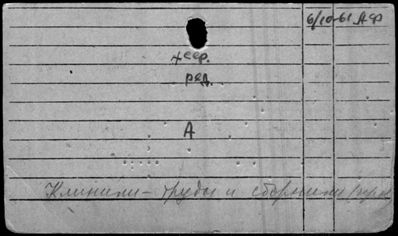 6/10-61 АФ
ред.
А
Клиники - труды и сборники